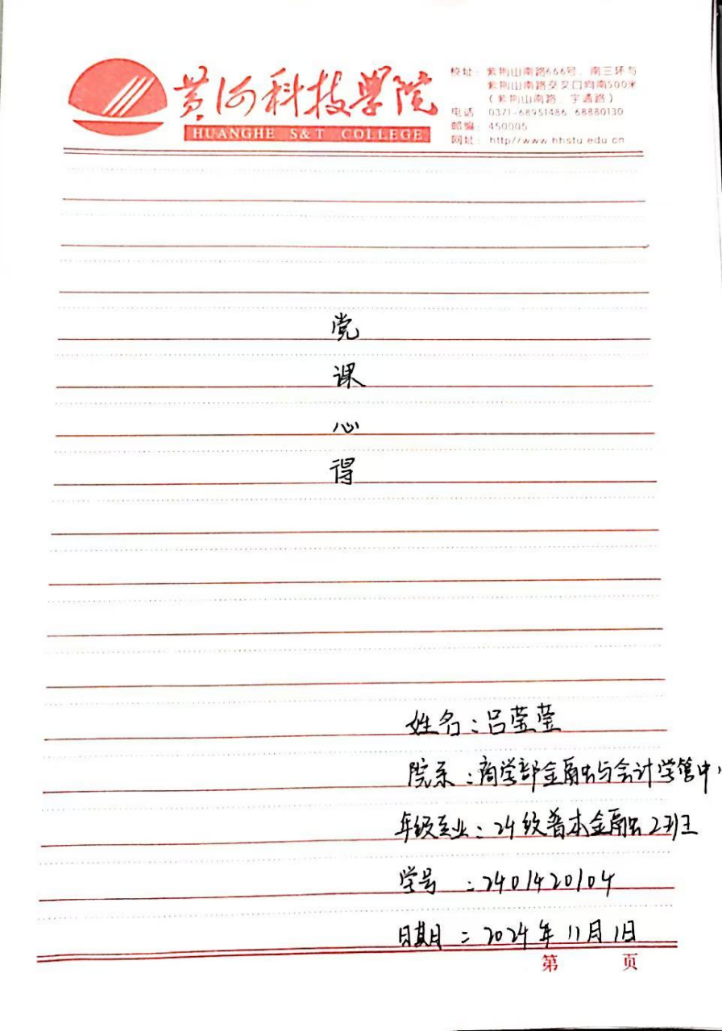 黄河科技学院
HUANGHE S&T COLLEGE
校址：紫荆山南路666号、南三环与
紫荆山南路交叉口向南500米
（紫荆山南路、宇通路）
电话：0371-68951486 68880130
邮编：450005
网址：http//www.hhstu.edu.cn
党
课
心
得
姓名：吕莹莹
院系：商学部金融与会计学管中
年级专业：24级普本金融2班
学号：2401420104
日期：2024年11月1日
第 页